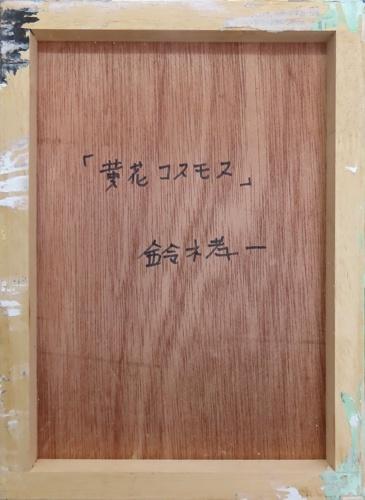 「黄花コスモス」
鈴木孝一